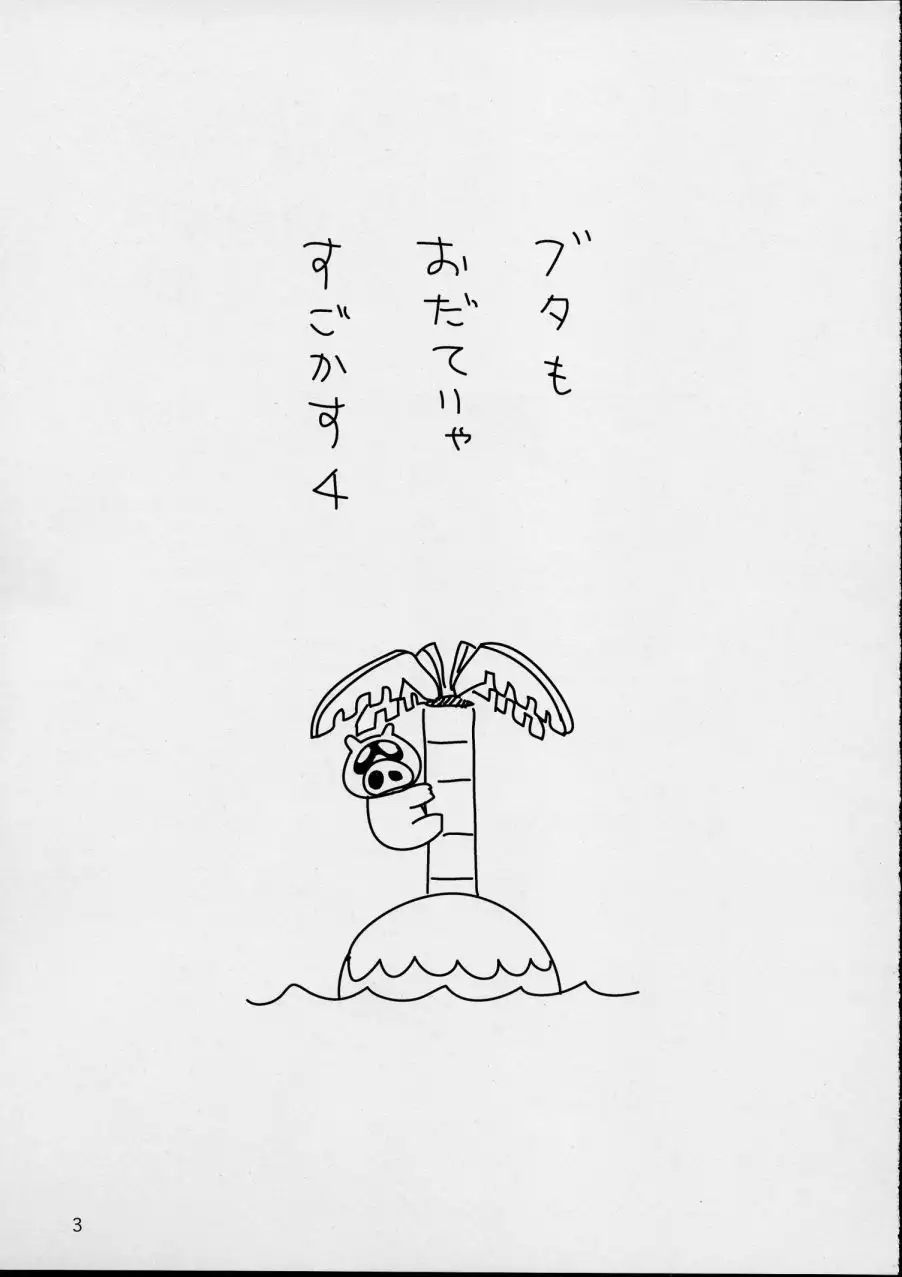 ブタも
おだてりゃ
すごかす4
3